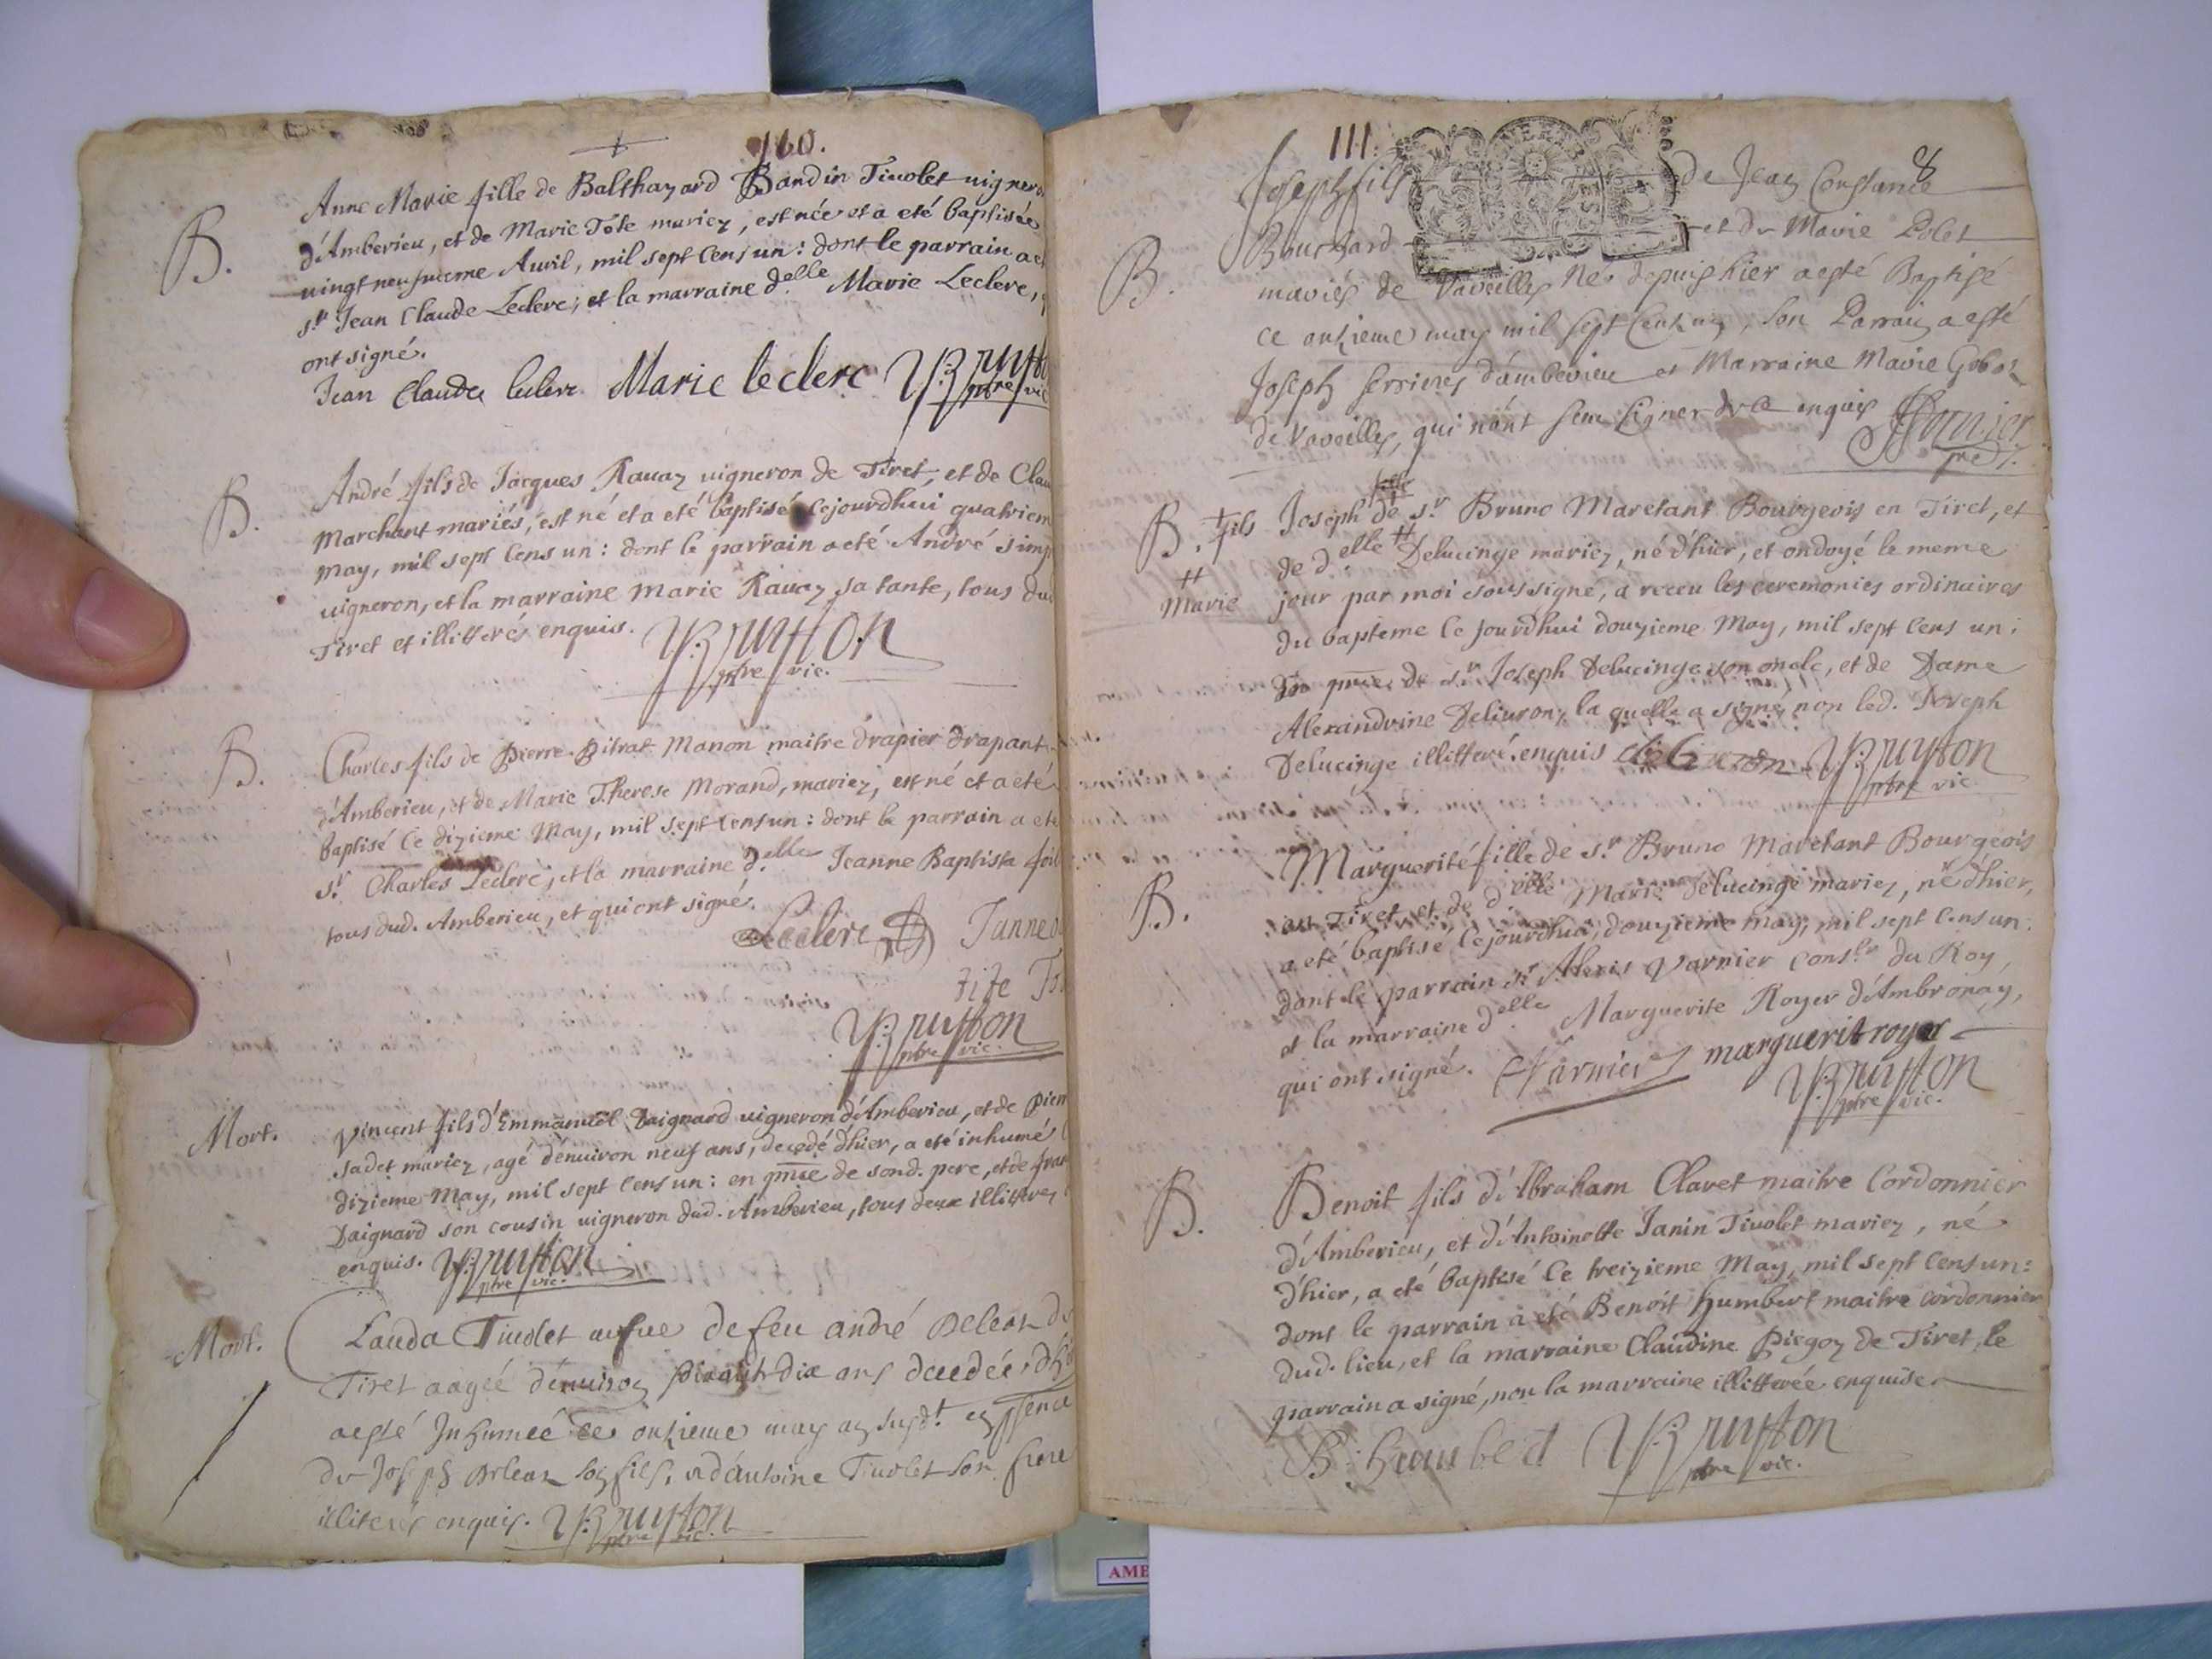 110.
B.
Anne Marie fille de Balthazard Bandin Tiuolet uigner
d'Amberieu, et de Marie Tête mariez, est née et a eté baptisée
uingt neufuieme Auril, mil sept cens un: dont le parrain a
s.r Jean Claude Leclerc, et la marraine d.elle Marie Leclerc,
ont signé.
Jean Claude leclerc Marie leclerc Bruyson
ptre vic
B.
André fils de Jacques Rauaz uigneron de Tiret, et de Clau
Marchant mariés, est né et a eté baptisé cejourdhui quatriem
May, mil sept cens un: dont le parrain a eté André Simp
uigneron, et la marraine Marie Rauaz sa tante, tous dud
Tiret et illitterés enquis. Bruyson
ptre vic.
B.
Charles fils de Pierre Bitrat Manon maitre drapier drapant
d'Amberieu, et de Marie Therese Morand, mariez, est né et a eté
baptisé ce dizieme May, mil sept cens un: dont le parrain a eté
s.r Charles Leclerc, et la marraine d.elle Jeanne Baptista
tous dud. Amberieu, et qui ont signé.
Leclerc Janne
Bruyson
ptre vic.
Mort.
Vincent fils d'Emmanuël Daignard uigneron d'Amberieu, et de Pier
Sadet mariez, agé d'enuiron neuf ans, decedé d'hier, a eté inhumé
dizieme May, mil sept cens un: en pnce de sond. pere, et de fran
Daignard son cousin uigneron dud. Amberieu, tous deux illitteres
enquis. Bruyson
ptre vic.
Mort.
Clauda Tiuolet uefue de feu andré Orleat de
Tiret aagée denuiron dix ans decedée d'h
aesté Inhumeé ce onzieme may an susd.t en
de Joseph Orleat son fils, et d'antoine Tiuolet son frere
illiterés enquis. Bruyson
ptre vic.
111.
8
B.
Joseph fils de Jean Constance
Bouchard et de Marie Polet
mariés de Vareilles Né depuis hier aesté Baptisé
ce onzieme may mil sept cent un, son Parrain aesté
Joseph ferrieres d'amberieu et Marraine Marie Gobet
de Vareilles, qui n'ont sceu signer de ce enquis
pre
B. † fils Joseph de s.r Bruno Maretant Bourgeois en Tiret, et
de d.elle # Delucinge mariez, né d'hier, et ondoyé le meme
# Marie jour par moi soussigné, a receu les ceremonies ordinaires
du bapteme ce jourdhui douzieme May, mil sept cens un:
en pnce de s.r Joseph Delucinge son oncle, et de Dame
Alexandrine Deliuron, la quelle a signé, non led. Joseph
Delucinge illitteré enquis Bruyson
ptre vic.
B.
Marguerite fille de s.r Bruno Maretant Bourgeois
en Tiret, et de d.elle Marie Delucinge mariez, né d'hier,
a eté baptisé cejourdhui douzieme may, mil sept cens un:
dont le parrain s.r Alexis Varnier cons.er du Roy,
et la marraine d.elle Marguerite Royer d'Ambronay,
qui ont signé. Varnier marguerit royer
Bruyson
ptre vic.
B.
Benoit fils d'Abraham Claret maitre Cordonnier
d'Amberieu, et d'Antoinette Janin Tiuolet mariez, né
d'hier, a eté baptisé ce treizieme May, mil sept cens un:
dont le parrain a eté Benoit humbert maitre cordonnier
dud. lieu, et la marraine Claudine Piegoz de Tiret, le
parrain a signé, non la marraine illitterée enquise.
B. humbert Bruyson
ptre vic.
AMB